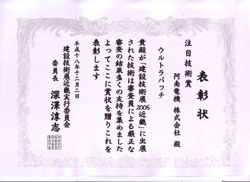 表彰状
注目技術賞
阿南電機 株式会社 殿
ウルトラパッチ
貴殿が「建設技術展2006近畿」に出展
された技術は審査員による厳正な
審査の結果多くの支持を集めました
よってここに賞状を贈りこれを
表彰します
平成十八年十二月二日
建設技術展近畿実行委員会
委員長 深澤淳志